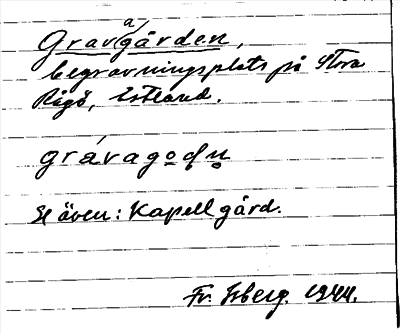 Gravagården,
begravningsplats på Stora
Rågö, Estland.
grávagoḍn̥
Se även: Kapellgård.
Fr. Isberg. 1944.